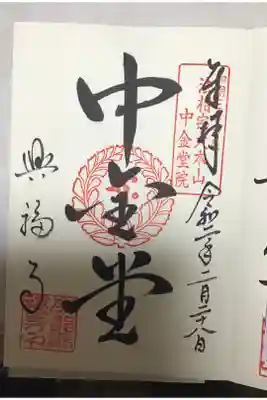 奉拝 令和二年二月二十八日
法相宗大本山
中金堂院
中金堂
興福寺